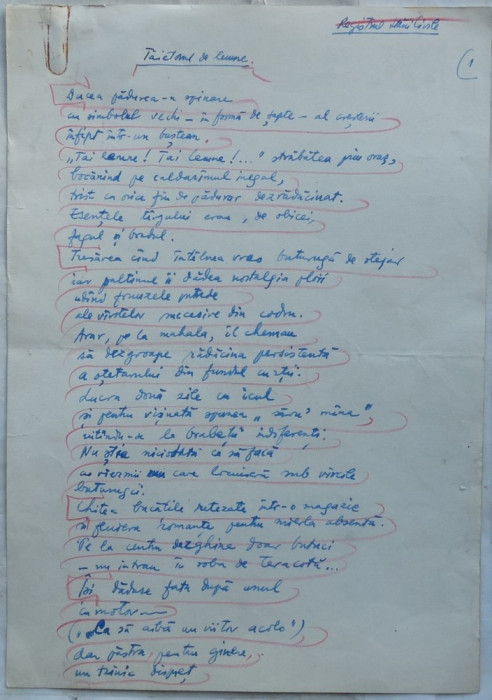 Registrul
(1
Tăietorul de lemne.
Ducea pădurea-n spinare
cu simbolul vechi – în formă de șapte – al creșterii
înfipt într-un buștean.
„Tai lemne! Tai lemne!..." străbătea prin oraș,
bocănind pe caldarîmul inegal,
trist ca orice fiu de pădurar dezrădăcinat.
Esențele tîrgului erau, de obicei,
fagul și bradul.
Tresărea cînd întîlnea vreo buturugă de stejar
iar paltinul îi dădea nostalgia ploii
udînd frunzele putrede
ale vîrstelor succesive din codru.
Arar, pe la mahala, îl chemau
să dezgroape rădăcina persistentă
a oțetarului din fundul curții.
Lucra două zile cu icul
și pentru vișinată spunea „săru' mîna",
uitîndu-se la indiferenți.
Nu știa niciodată ce să facă
cu viermii care locuiseră sub vîrsta
buturugii.
Chitea bucățile retezate într-o magazie
și fluiera romanțe pentru mierla absentă.
Pe la centru dezghina doar butuci
– nu intrau în soba de teracotă...
Își dăduse fata după unul
cu motor
(„Ca să aibă un viitor acolo"),
dar păstra, pentru ginere,..
un trainic dispreț